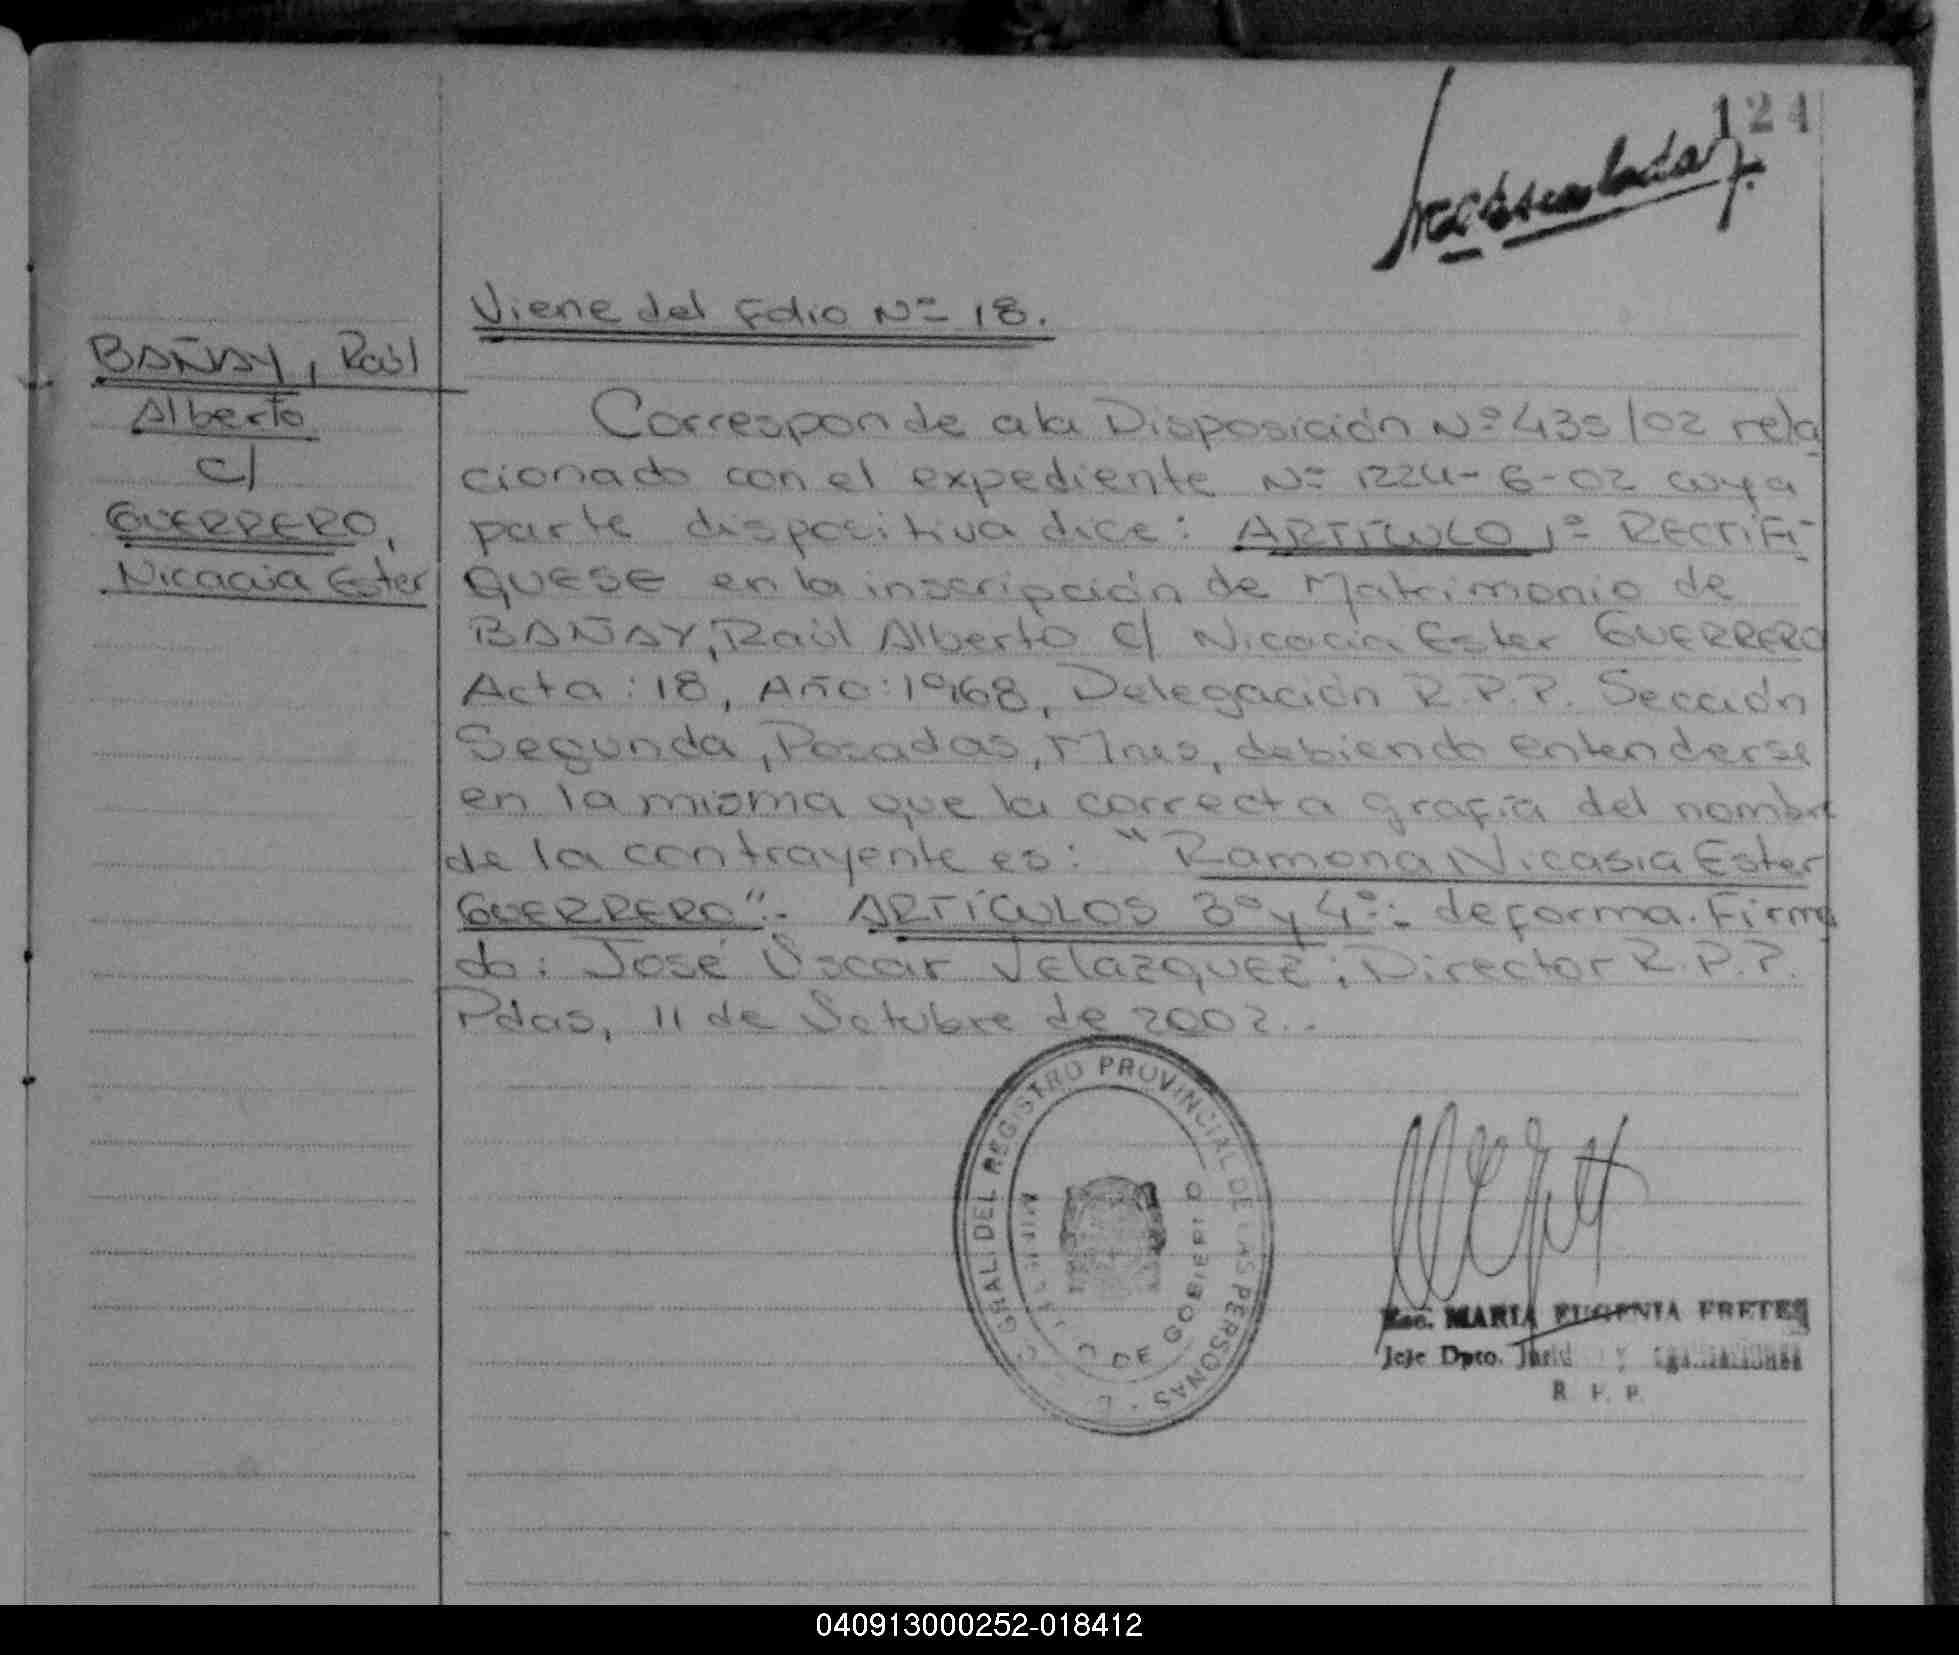 124
Viene del Folio Nº 18.
BAÑAY, Raúl
Alberto
c/
GUERRERO,
Nicacia Ester
Corresponde a la Disposición Nº 435/02 rela
cionado con el expediente Nº 1224-6-02 cuya
parte dispositiva dice: ARTÍCULO 1º RECTIFI-
QUESE en la inscripción de Matrimonio de
BAÑAY, Raúl Alberto c/ Nicacia Ester GUERRERO
Acta: 18, Año: 1968, Delegación R.P.P. Sección
Segunda, Posadas, Mnes, debiendo entenderse
en la misma que la correcta grafía del nombre
de la contrayente es: "Ramona Nicasia Ester
GUERRERO".- ARTÍCULOS 3º y 4º:- de forma. Firma
do: José Oscar Velazquez; Director R.P.P.
Pdas, 11 de Octubre de 2002..
GRAL. DEL REGISTRO PROVINCIAL DE LAS PERSONAS
DE GOBIERNO
Esc. MARIA EUGENIA FRETES
Jefe Dpto.
R. P. P.
040913000252-018412